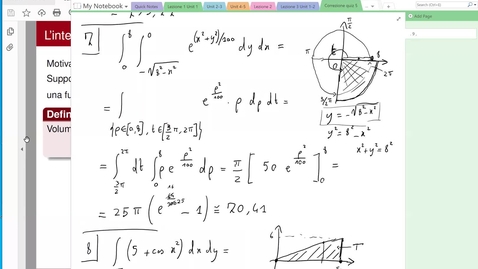 My Notebook
Lezione 1 Unit 1
Unit 2-3
Unit 4-5
Lezione 2
Lezione 3 Unit 1-2
Correzione quiz 5
Add Page
L'inte
Motiva
Suppo
una fu
Defin
Volum
7 ∫₀⁸ ∫_{-√(8²-x²)}^0 e^{(x²+y²)/100} dy dx =
= ∫_{{ρ∈[0,8], t∈[3/2 π, 2π]}} e^{ρ²/100} · ρ dρ dt =
= ∫_{3/2 π}^{2π} dt ∫₀⁸ ρ e^{ρ²/100} dρ = π/2 [50 e^{ρ²/100}]₀⁸ =
= 25 π (e^{16/25} - 1) ≅ 70,41
π/2
π
8
2π
3/2 π
y = -√(8²-x²)
y² = 8² - x²
x² + y² = 8²
8 ∫ (5 + cos x²) dx dy =
6
T